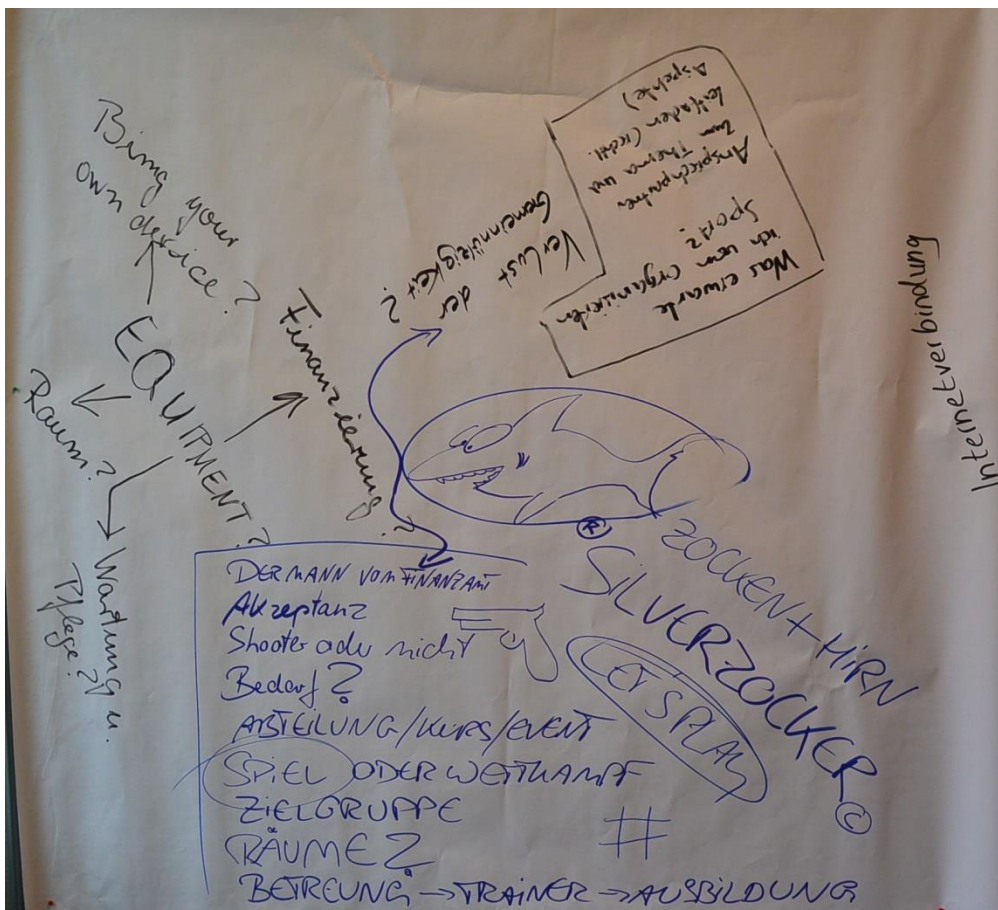 Bring your
own device?
EQUIPMENT?
Raum?
Wartung u.
Pflege?
Finanzierung?
Verlust
der
Gemeinnützigkeit?
Was erwarte
ich vom organisierten
Sport?
Ansprechpartner
zum Thema und
Leitfaden (rechtl.
Aspekte)
Internetverbindung
ZOCKEN + HIRN
® SILVERZOCKER ©
LET'S PLAY
DER MANN VOM FINANZAMT
Akzeptanz
Shooter oder nicht
Bedarf?
ABTEILUNG/KURS/EVENT
SPIEL ODER WETTKAMPF
ZIELGRUPPE
RÄUME?
#
BETREUUNG → TRAINER → AUSBILDUNG